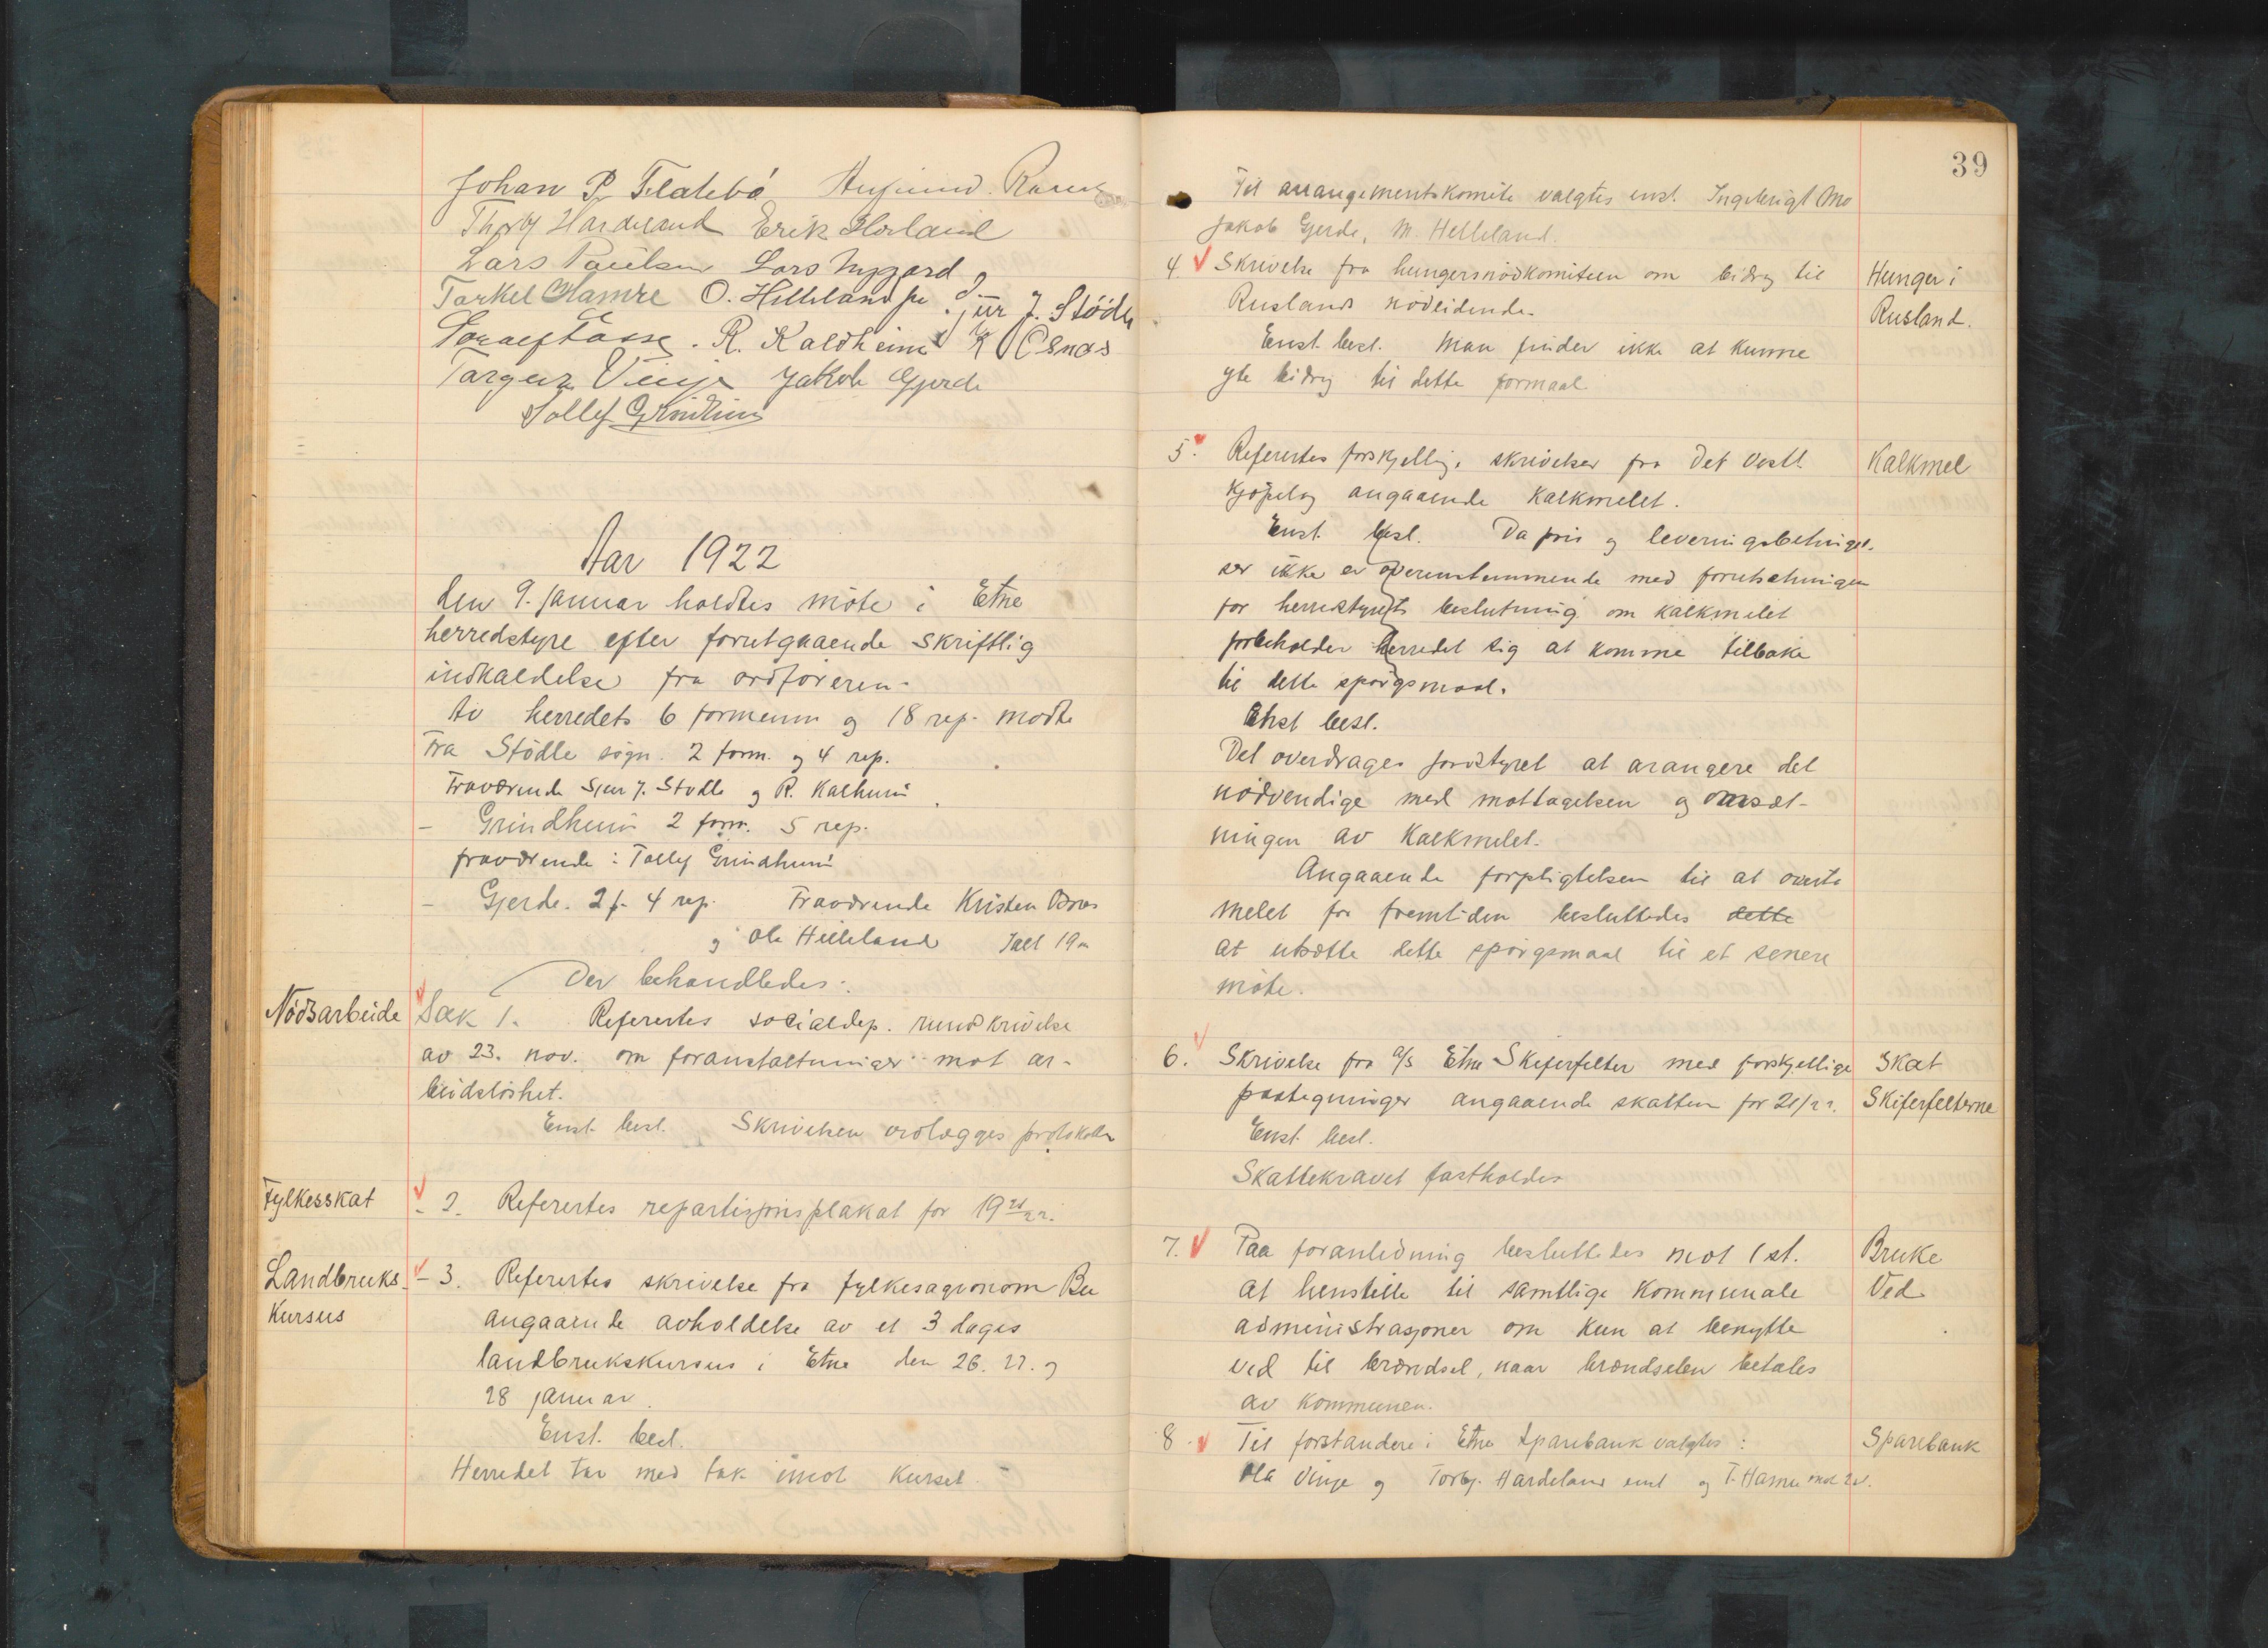 Johan P. Flatebö
Thorbj Hardeland Erik Hovland
Lars Paulsen Lars Nygard
Torkel Hamre O. Helleland
Sjur J. Stödle
R. Kaldheim Kr Osnes
Torgeir Vinje Jakob Gjerde
Tollef Grindheim
Aar 1922
den 9. januar holdtes möte i Etne
herredstyre efter forutgaaende skriftlig
indkaldelse fra ordföreren.
Av herredets 6 formenn og 18 rep. mødte
Fra Stödle sogn. 2 form. og 4 rep.
Fraværende Sjur J. Stødle og R. Kalheim
- Grindheim 2 form. 5 rep.
fraværende: Tollef Grindheim
- Gjerde. 2 f. 4 rep. Fraværende Kristen Osnes
og Ole Helleland Ialt 19
Der behandledes:
Nödsarbeide
Sak 1. Referertes socialdep. rundskrivelse
av 23. nov. om foranstaltninger mot ar-
beidslöshet.
Enst. besl. Skrivelsen vedlægges protokollen
Fylkesskat
- 2. Referertes repartisjonsplakat for 19 21/22.
Landbruks-
kursus
- 3. Referertes skrivelse fra fylkesagronom Bu
angaaende avholdelse av et 3 dages
landbrukskursus i Etne den 26. 27. og
28 januar.
Enst. besl.
Herredet tar med tak imot kurset.
39
Til arrangementskomite valgtes enst. Ingebrigt Mo
Jakob Gjerde, M. Helleland.
4. Skrivelse fra hungersnödkomiteen om bidrag til
Ruslands nödlidende.
Hunger i
Rusland.
Enst. besl. Man finder ikke at kunne
yte bidrag til dette formaal
5. Referertes forskjellige skrivelser fra Det Vestl.
Kjöpelag angaaende Kalkmelet.
Kalkmel
Enst. besl. Da pris og leveringsbetingel-
ser ikke er overenstemmende med forutsetningen
for herredstyrets beslutning om kalkmelet
forbeholder herredet sig at komme tilbake
til dette spörgsmaal.
Enst besl.
Det overdrages forstyret at arangere det
nödvendige med mottagelsen og omsæt-
ningen av Kalkmelet.
Angaaende forpligtelsen til at overta
melet for fremtiden besluttedes dette
at utsætte dette spörgsmaal til et senere
möte.
6. Skrivelse fra A/S Etne Skiferfelter med forskjellige
paategninger angaaende skatten for 21/22.
Skat
Skiferfelterne
Enst. besl.
Skattekravet fastholdes
7. Paa foranledning besluttedes mot 1 st.
at henstille til samtlige kommunale
administrasjoner om kun at benytte
ved til brændsel, naar brændselen betales
av kommunen.
Bruke
Ved
8. Til forstandere i Etne Sparebank valgtes:
Ola Vinje og Torbj. Hardeland enst og T. Hamre mot 2 st.
Sparebank